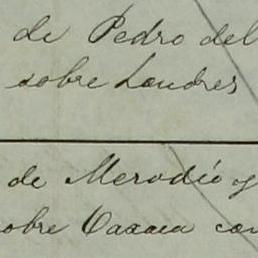 de Pedro del
sobre Londres
de Merodio y
sobre Oaxaca con